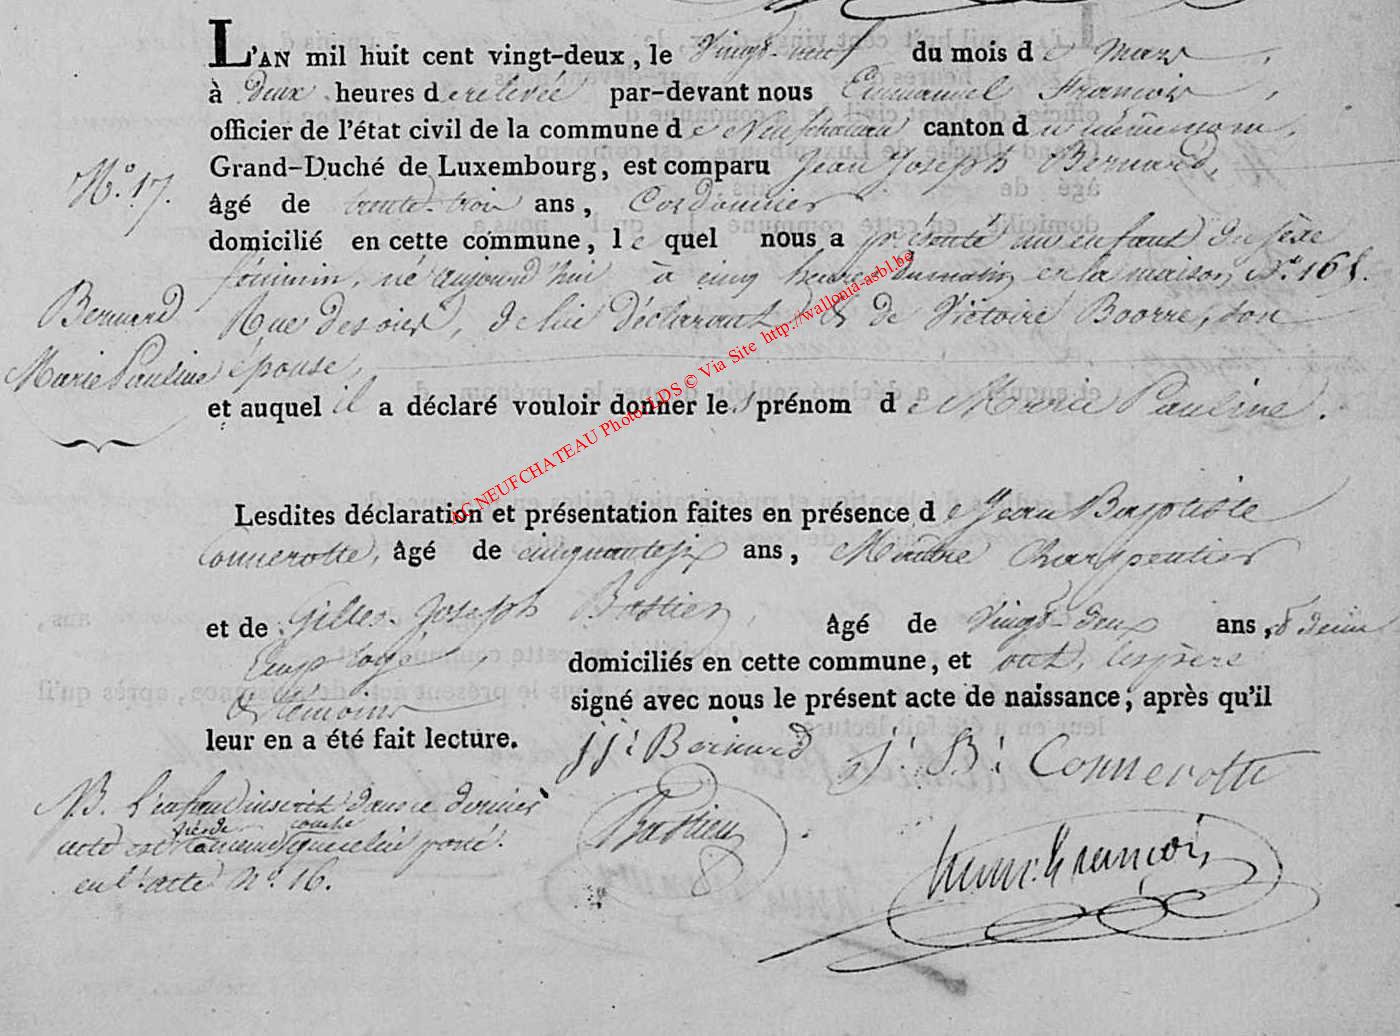 L'AN mil huit cent vingt-deux, le Vingt-neuf du mois de Mars
à deux heures de relevée par-devant nous Emmanuel François,
officier de l'état civil de la commune de Neufchateau canton du même nom,
Grand-Duché de Luxembourg, est comparu Jean Joseph Bernard,
N.º 17.
âgé de trente-trois ans, Cordonnier
domicilié en cette commune, le quel nous a présenté un enfant du sexe
féminin, né aujourd'hui à cinq heures du matin, en la maison Nº 168.
Bernard
Marie Pauline
Rue des oies, de lui déclarant & de Victoire Boorre, son
épouse,
et auquel il a déclaré vouloir donner les prénom de Marie Pauline.
AC NEUFCHATEAU Photo LDS © Via Site http://wallonia-asbl.be
Lesdites déclaration et présentation faites en présence de Jean Baptiste
Connerotte, âgé de cinquante six ans, Maître Charpentier
et de Gilles Joseph Bastien, âgé de Vingt-deux ans, & demi
Employé, domiciliés en cette commune, et ont, les père
& témoins signé avec nous le présent acte de naissance, après qu'il
leur en a été fait lecture.
J J: Bernard J: B: Connerotte
N.B. l'enfant inscrit dans ce dernier
acte est née de la même couche que celui porté
en l'acte Nº 16.
Bastien
Emm. François